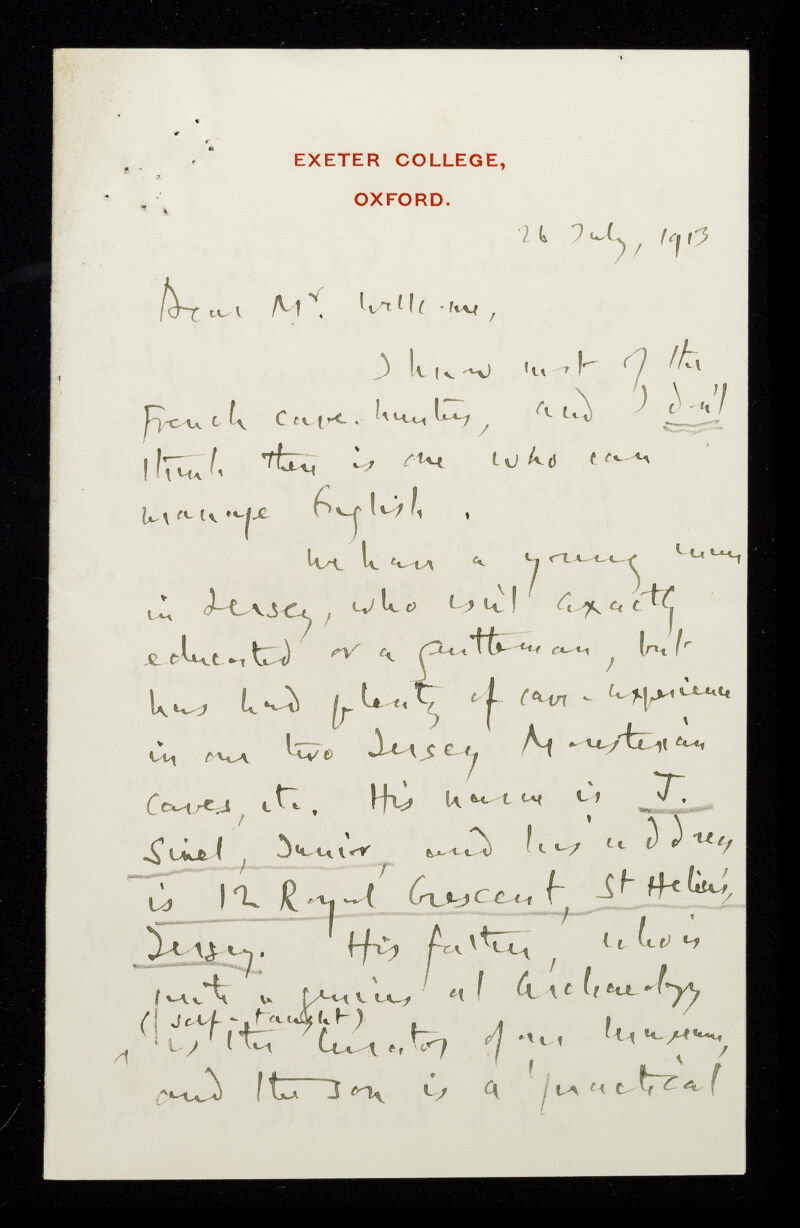 EXETER COLLEGE,
OXFORD.
26 July, 1913
Dear Mr. Wellcome,
I know most of the
French cave-hunters, and I don't
think there is one who can
manage English.
We have a young man
in Jersey, who isn't exactly
educated or a gentleman, but
has had plenty of cave-experience
in our two Jersey Mousterian
caves, etc. His name is J.
Sinel, Junior, and his address
is 12 Royal Crescent, St Helier's,
Jersey. His father, who is
quite a genius at Archaeology
(self-taught)
is the Curator of our Museum,
and the son is a 'practical